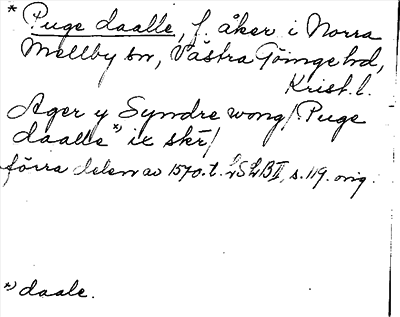 * Puge daalle, f. åker i Norra
Mellby sn, Västra Göinge hd,
Krist. l.
Ager y Syndre wong / Puge
daalle *) ix skr̄ /
förra delen av 1570.t. LSLB II, s. 119. orig.
*) daale.